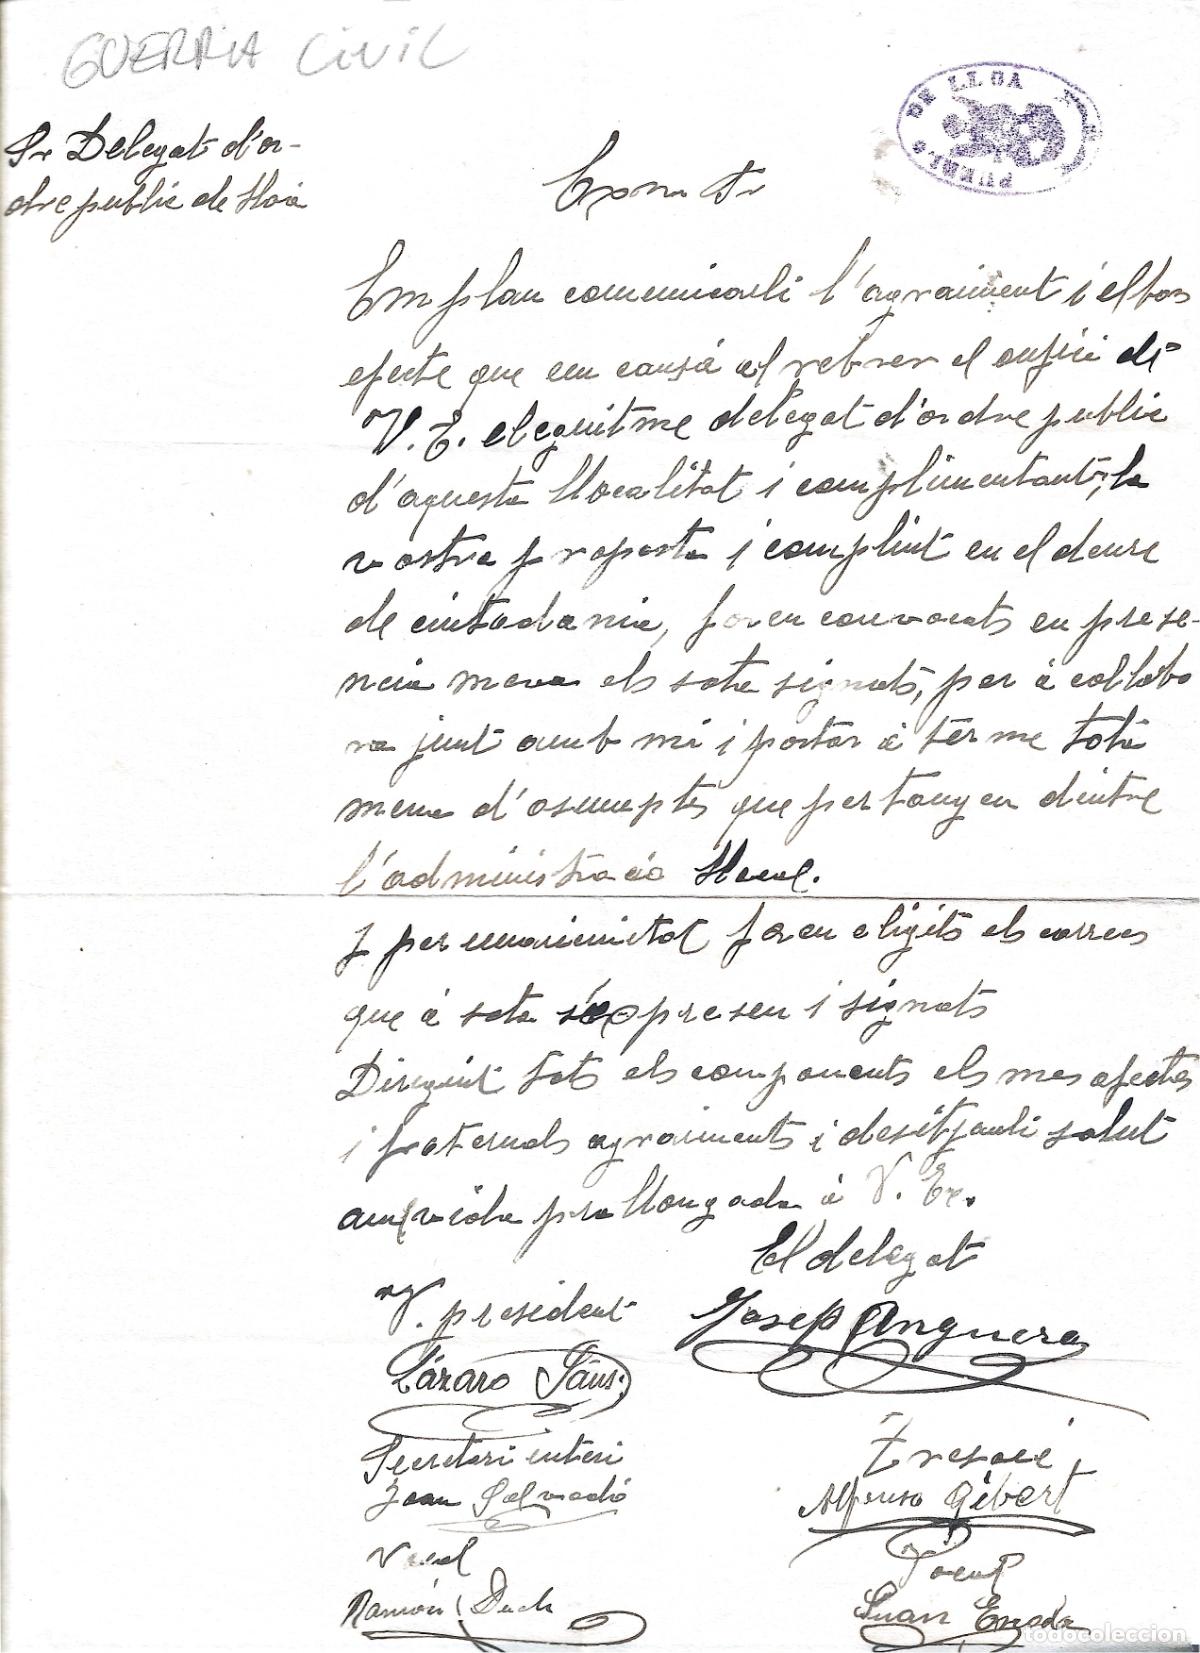 GUERRA CIVIL
PUEBLO DE LLOA
Sr Delegat d'or-
dre public de Lloá
Exm Sr
Em plau comunicarli l'agraiment i el bon
efecte que em causá al rebrer el oufici de
V. E. eleguitme delegat d'ordre public
d'aquesta llocalitat i complimentant, la
vostra proposta i complint en el deure
de ciutadania, foren convocats en prese-
ncia meva els sota signats, per á collabo
ra junt amb mi i portar á terme tota
mena d'asumptes que pertanyen dintre
l'administració llocal.
I per unanimitat foren eligits els carrecs
que á sota s'expresen i signats
Dirigint tots els components els mes afectes
i fraternals agraiments i desitjanli salut
am vida prollongada á V. Ex.
El delegat
V. president
Josep Anguera
Lázaro Sans.
Secretari interi
Joan Salvadó
Tresoré
Alfonso Gibert
Vocal
Ramón Duch
Vocal
Juan
todocoleccion